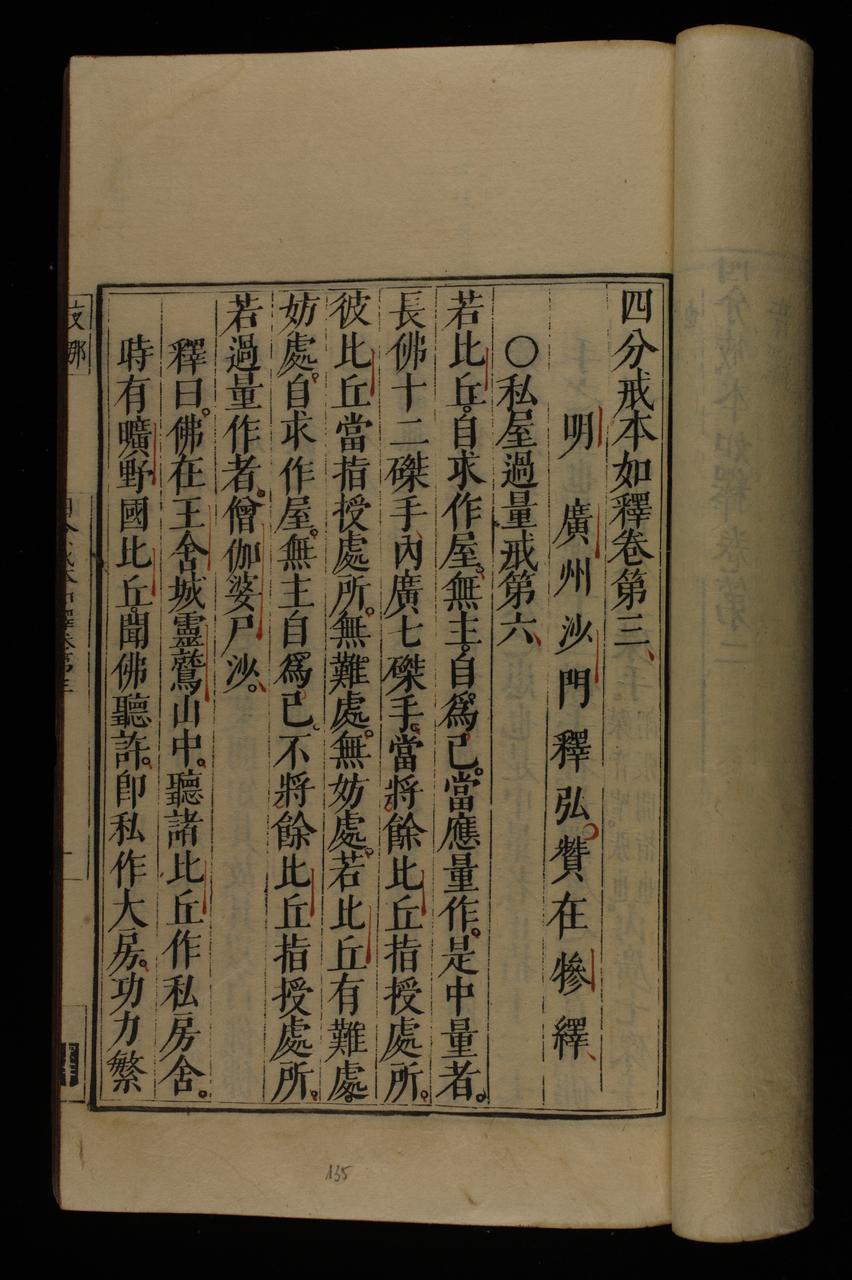 四分戒本如釋卷第三
明廣州沙門釋弘贊在犙繹
〇私屋過量戒第六
若比丘自求作屋無主自為己當應量作是中量者
長佛十二磔手內廣七磔手當將餘比丘指授處所
彼比丘當指授處所無難處無妨處若比丘有難處
妨處自求作屋無主自為己不將餘比丘指授處所
若過量作者僧伽婆尸沙
釋曰佛在王舍城靈鷲山中聽諸比丘作私房舍
時有曠野國比丘聞佛聽許即私作大房功力繁
135